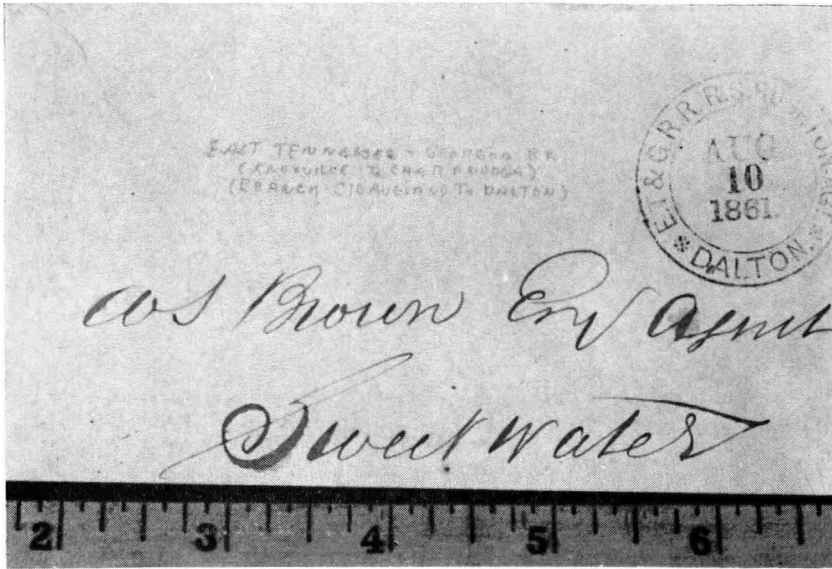 EAST TENNESSEE & GEORGIA RR
(KNOXVILLE TO CHATTANOOGA)
(BRANCH CLEAVELAND TO DALTON)
E.T.& G.R.R.
AUG
10
1861.
* DALTON. *
Brown Agent
Sweet Water
2 3 4 5 6